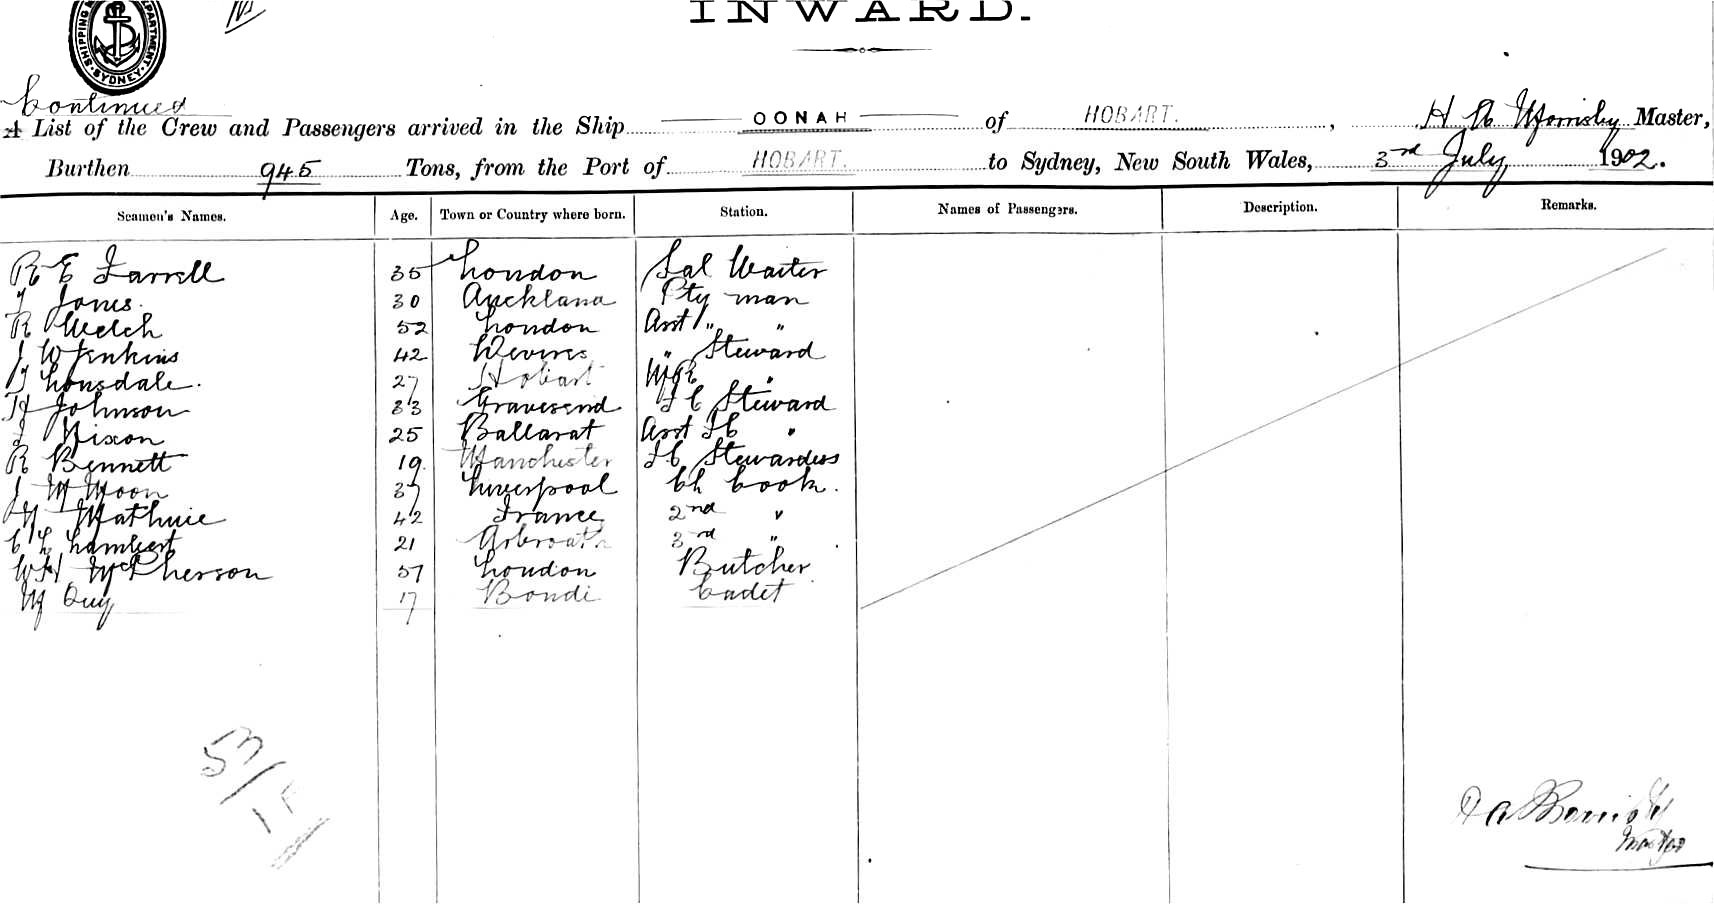 INWARD.
SHIPPING DEPARTMENT SYDNEY
Continued
A List of the Crew and Passengers arrived in the Ship OONAH of HOBART. , H A Morrisby Master,
Burthen 945 Tons, from the Port of HOBART. to Sydney, New South Wales, 3rd July 1902.
Seamen's Names. Age. Town or Country where born. Station. Names of Passengers. Description. Remarks.
R E Farrell 35 London Sal Waiter
T Jones. 30 Auckland Pty man
R Welch 52 London Asst " "
J W Jenkins 42 " Steward
T Lonsdale. 27 Hobart "
H Johnson 33 Gravesend F C Steward
Nixon 25 Ballarat Asst F C "
R Bennett 19. Manchester F C Stewardess
J M Moon 37 Liverpool Ch Cook.
42 France 2nd "
C L Lambert 21 Arbroath 3rd "
McPherson 57 London Butcher
M Quy 17 Bondi Cadet
53/1F
H A Morrisby
Master